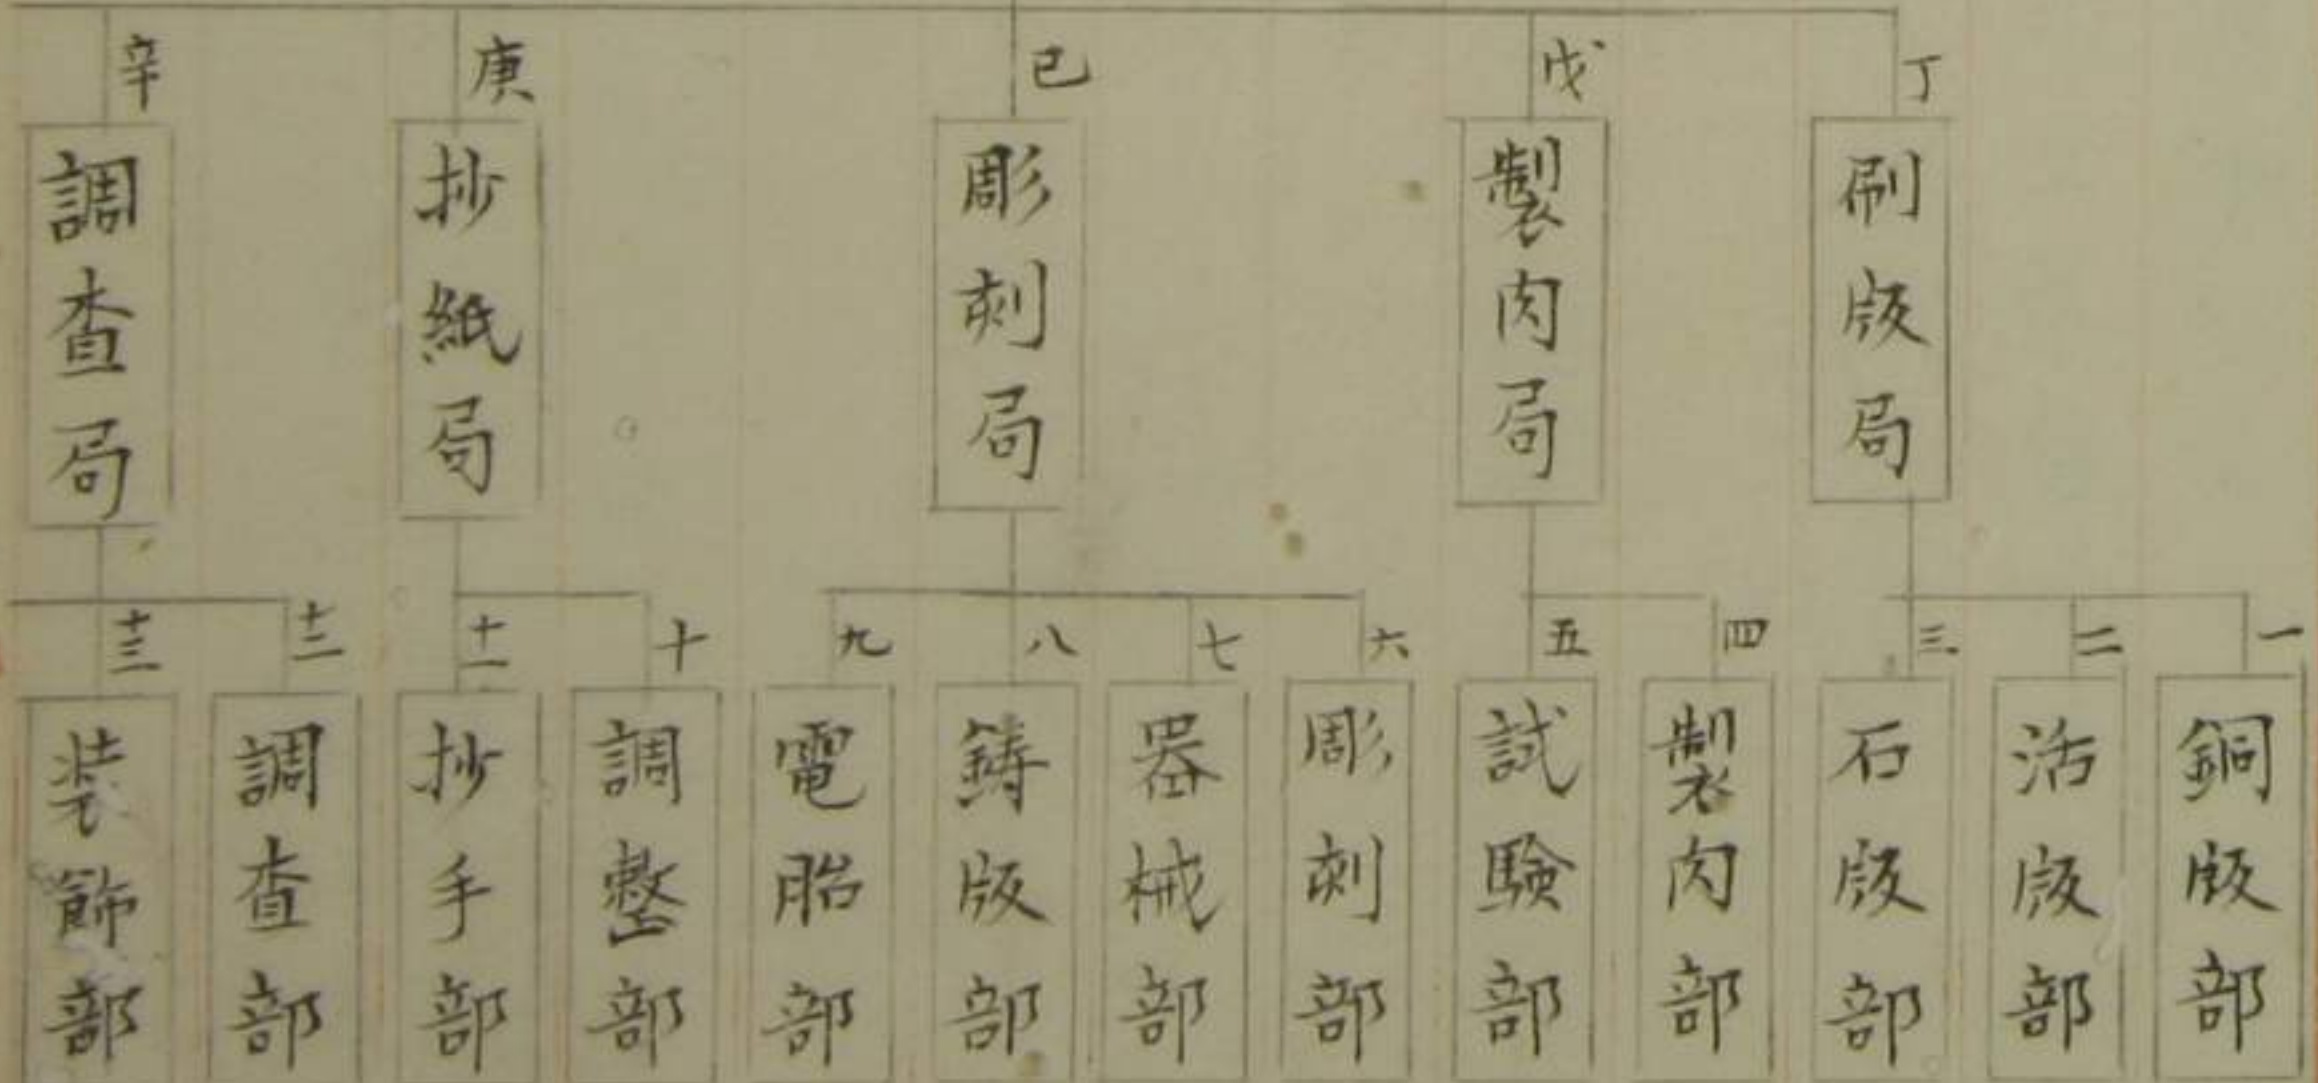 丁
刷版局
戊
製肉局
己
彫刻局
庚
抄紙局
辛
調査局
一
銅版部
二
活版部
三
石版部
四
製肉部
五
試験部
六
彫刻部
七
器械部
八
鋳版部
九
電胎部
十
調整部
十一
抄手部
十二
調査部
十三
装飾部